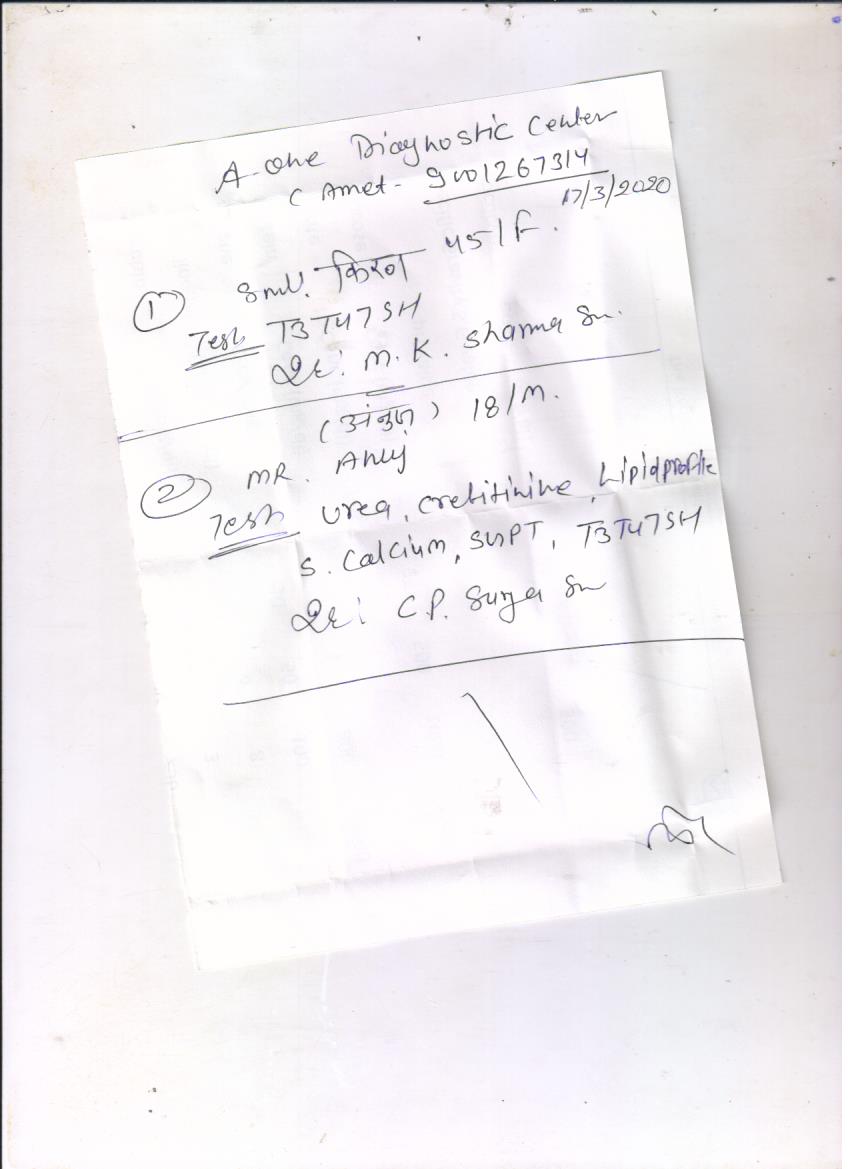 A-one Diagnostic Center
( Amet - 9001267314
17/3/2020
① Smt. किरण 45/F.
Test T3T4TSH
Dr: M.K. Sharma Sir.
(अंनुज) 18/M.
② MR. Anuj
Test Urea, cretitinine, Lipidprofile
S. Calcium, SGPT, T3T4TSH
Dr: C.P. Surya Sir